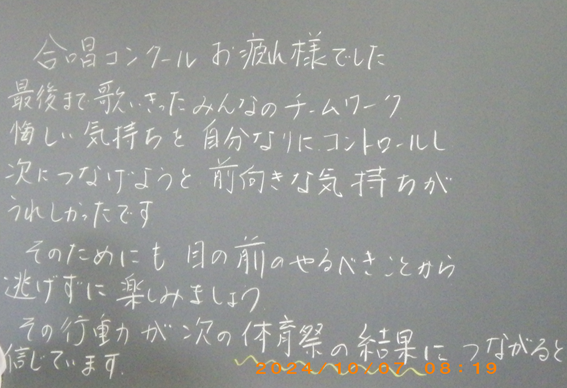 合唱コンクールお疲れ様でした
最後まで歌いきったみんなのチームワーク
悔しい気持ちを自分なりにコントロールし
次につなげようと前向きな気持ちが
うれしかったです
そのためにも目の前のやるべきことから
逃げずに楽しみましょう
その行動が次の体育祭の結果につながると
信じています.
2024/10/07 08:19